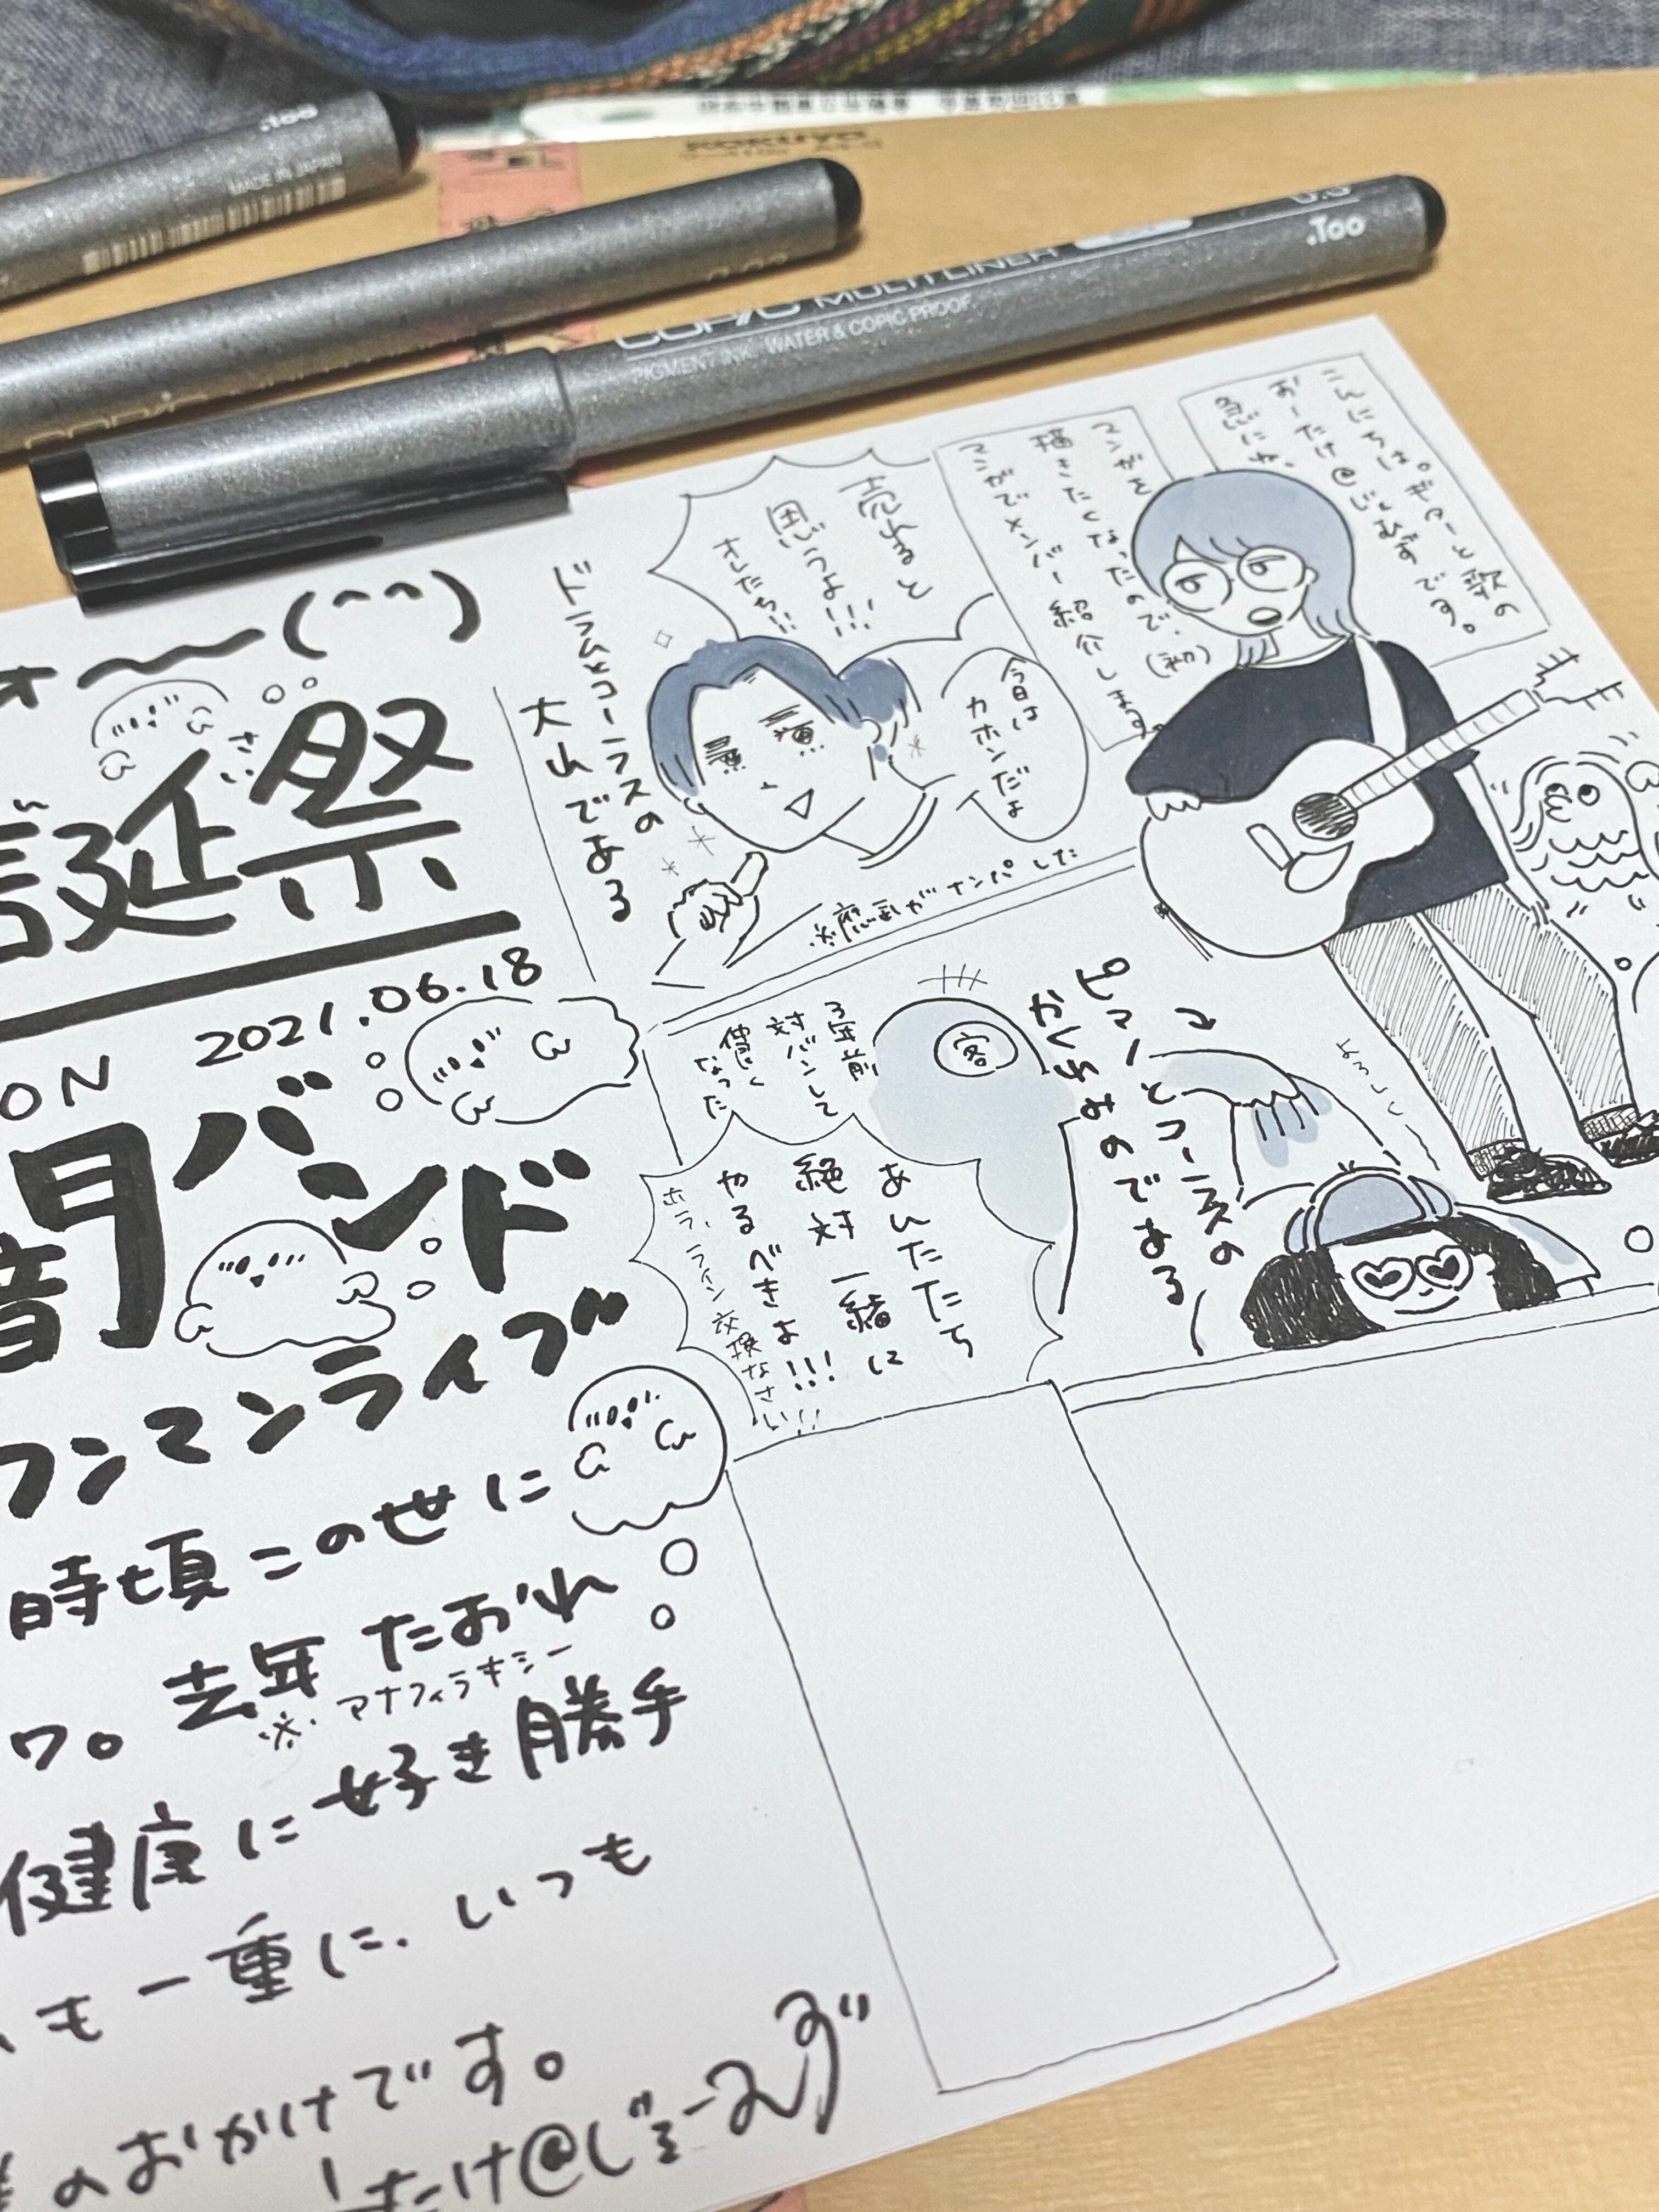 .Too
MADE IN JAPAN
KOKUYO
0.03
.Too
COPIC MULTI LINER
PIGMENT INK, WATER & COPIC PROOF
copic
こんにちは。ギターと歌の
おーたけ@じぇーむずです。
急にね、
マンガを
描きたくなったので、(初)
マンガでメンバー紹介します。
売れると
思うよ!!!
きたち!!
今日は
カホンだよ
ドラムとコーラスの
大山である
※應武がナンパした
ピアノとコーラスの
かしわみのである
よろしく
客
3年前
対バンして
仲良く
なった
あんたたち
絶対一緒に
やるべきよ!!!
ホラ、ライン交換なさい!!
ォ〜(^^)
さい
誕祭
2021.06.18
ON
バンド
ワンマンライブ
時頃この世に
ワ。去年たおれ
※アナフィラキシー
健康に好き勝手
も一重に、いつも
のおかげです。
たけ@じぇーむず